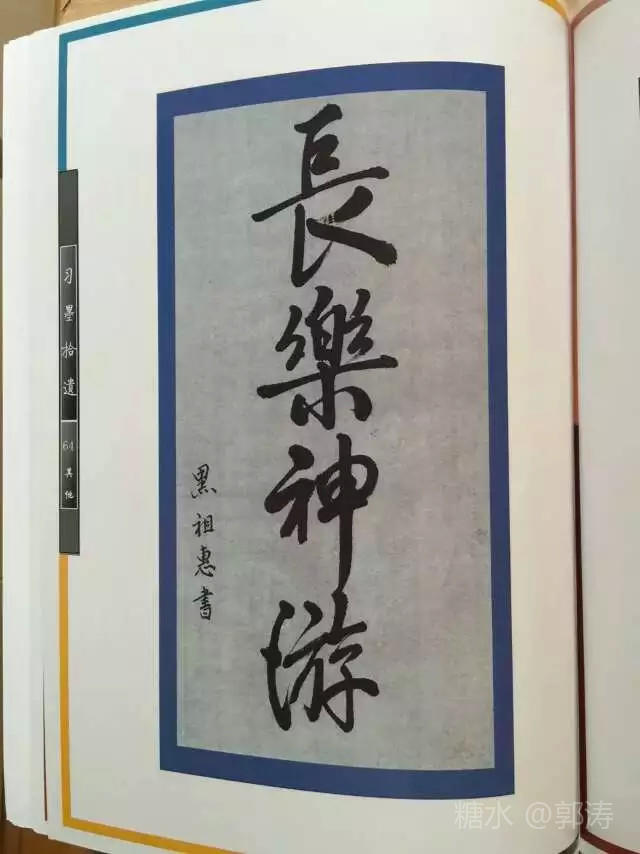 長樂神游
黑祖惠書
习墨拾遗
64 其他
糖水 @郭涛